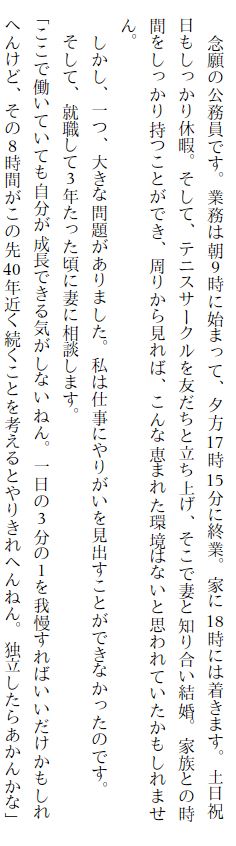 念願の公務員です。業務は朝9時に始まって、夕方17時15分に終業。家に18時には着きます。土日祝
日もしっかり休暇。そして、テニスサークルを友だちと立ち上げ、そこで妻と知り合い結婚。家族との時
間をしっかり持つことができ、周りから見れば、こんな恵まれた環境はないと思われていたかもしれませ
ん。
　しかし、一つ、大きな問題がありました。私は仕事にやりがいを見出すことができなかったのです。
　そして、就職して3年たった頃に妻に相談します。
「ここで働いていても自分が成長できる気がしないねん。一日の3分の1を我慢すればいいだけかもしれ
へんけど、その8時間がこの先40年近く続くことを考えるとやりきれへんねん。独立したらあかんかな」